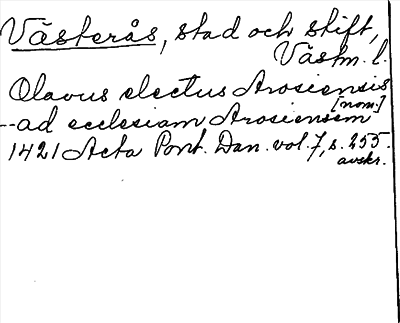 Västerås, stad och stift,
Västm. l.
Olavus electus Arosiensis
[nom.]
--ad ecclesiam Arosiensem
1421 Acta Pont. Dan. vol. 7, s. 255.
avskr.